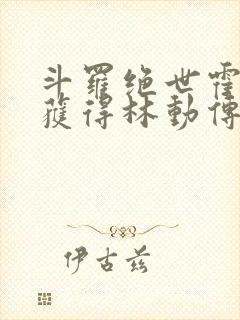 斗羅絶世霍
獲得林動傳
伊古兹